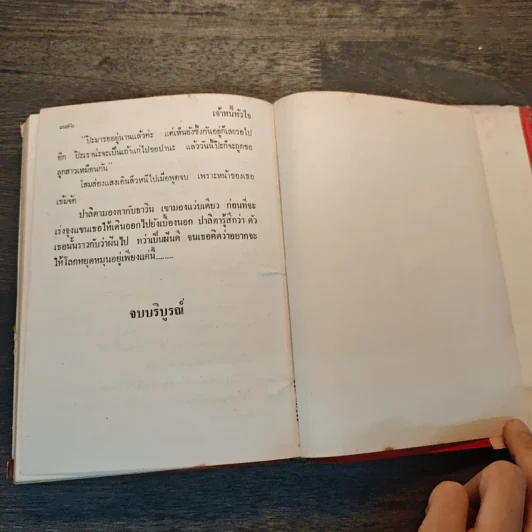 เจ้าหนี้หัวใจ
"ป๊ะมารออยู่นานแล้วค่ะ แต่เห็นยังซึ้งกันอยู่ก็เลยรอไป
อีก ป๊ะเราน่ะจะเป็นเถ้าแก่ไปขอปานะ แล้ววันนี้ป๊ะก็จะถูกขอ
ลูกสาวเหมือนกัน"
โสมส่องแสงเดินลิ่วหนีไปเมื่อพูดจบ เพราะหน้าของเธอ
เข้มจัด
ปาลิตามองตากับธาวิน เขามองแวบเดียว ก่อนที่จะ
เร่งจูงแขนเธอให้เดินออกไปยังเบื้องนอก ปาลิตารู้สึกว่า ตัว
เธอนั้นราวกับว่าฝันไป ทว่าเป็นฝันดี จนเธอคิดว่าอยากจะ
ให้โลกหยุดหมุนอยู่เพียงแค่นี้........
จบบริบูรณ์